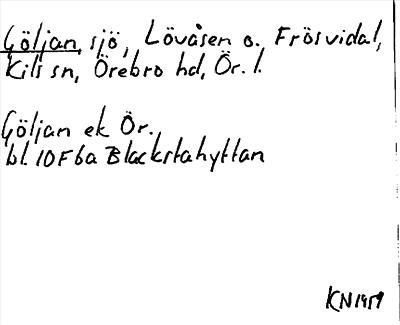 Göljan, sjö, Lövåsen o. Frösvidal,
Kils sn, Örebro hd, Ör. l.
Göljan ek Ör.
bl. 10F6a Blackstahyttan
KN 1959